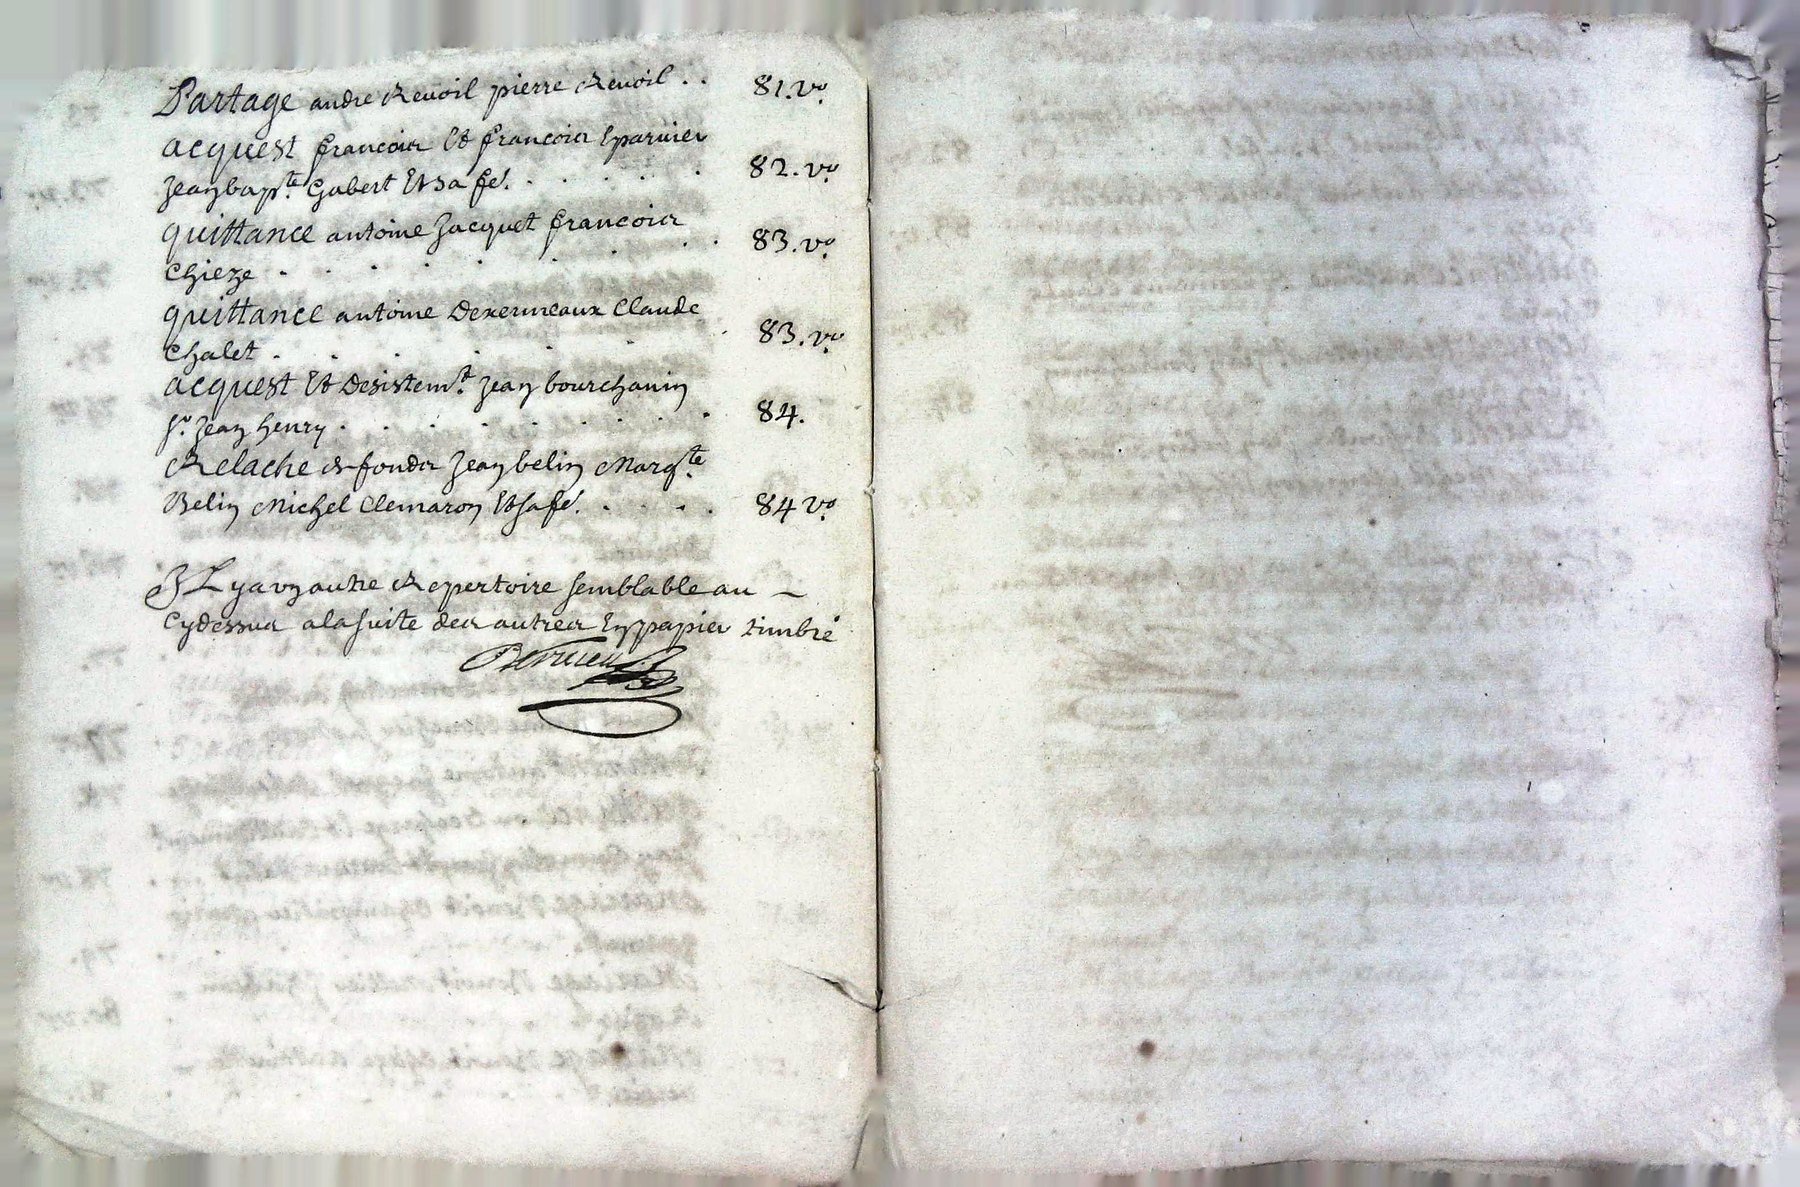 Partage andre Revoil pierre Revoil . . 81. vo.
acquest francois Et francois Eparvier
Jean bapte. Gabert Et sa fe. . . . . . 82. vo.
quittance antoine Jacquet francois
Chieze . . . . . . . 83. vo.
quittance antoine Dexermeaux Claude
Chalet . . . . . . 83. vo.
acquest Et Desistemt. Jean bourchanin
sr. Jean henry . . . . . . . 84.
Relache de fonds Jean belin Margte.
Belin Michel Clemaron Et sa fe. . . . . 84 vo.
IL y a un autre Repertoire semblable au
Cydessus a la suite des autres En papier timbré